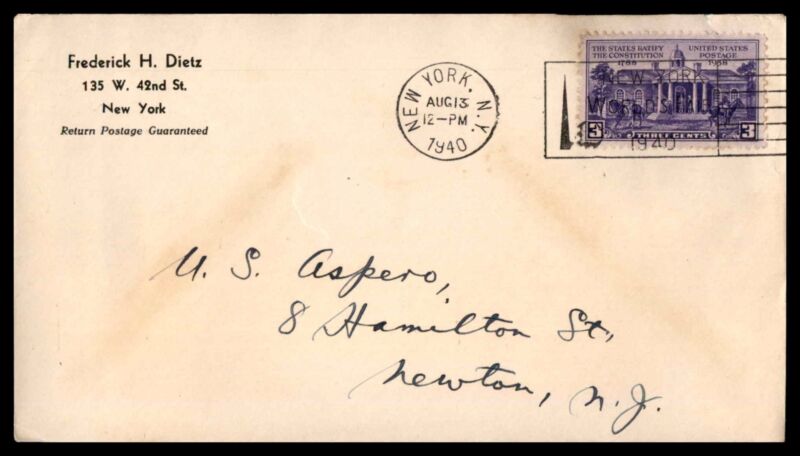 Frederick H. Dietz
135 W. 42nd St.
New York
Return Postage Guaranteed
NEW YORK, N.Y.
AUG 13
12-PM
1940
NEW YORK
WORLD'S FAIR
1940
THE STATES RATIFY THE CONSTITUTION
1788
UNITED STATES POSTAGE
1938
3 THREE CENTS 3
U. S. Aspero,
8 Hamilton St,
Newton, N.J.